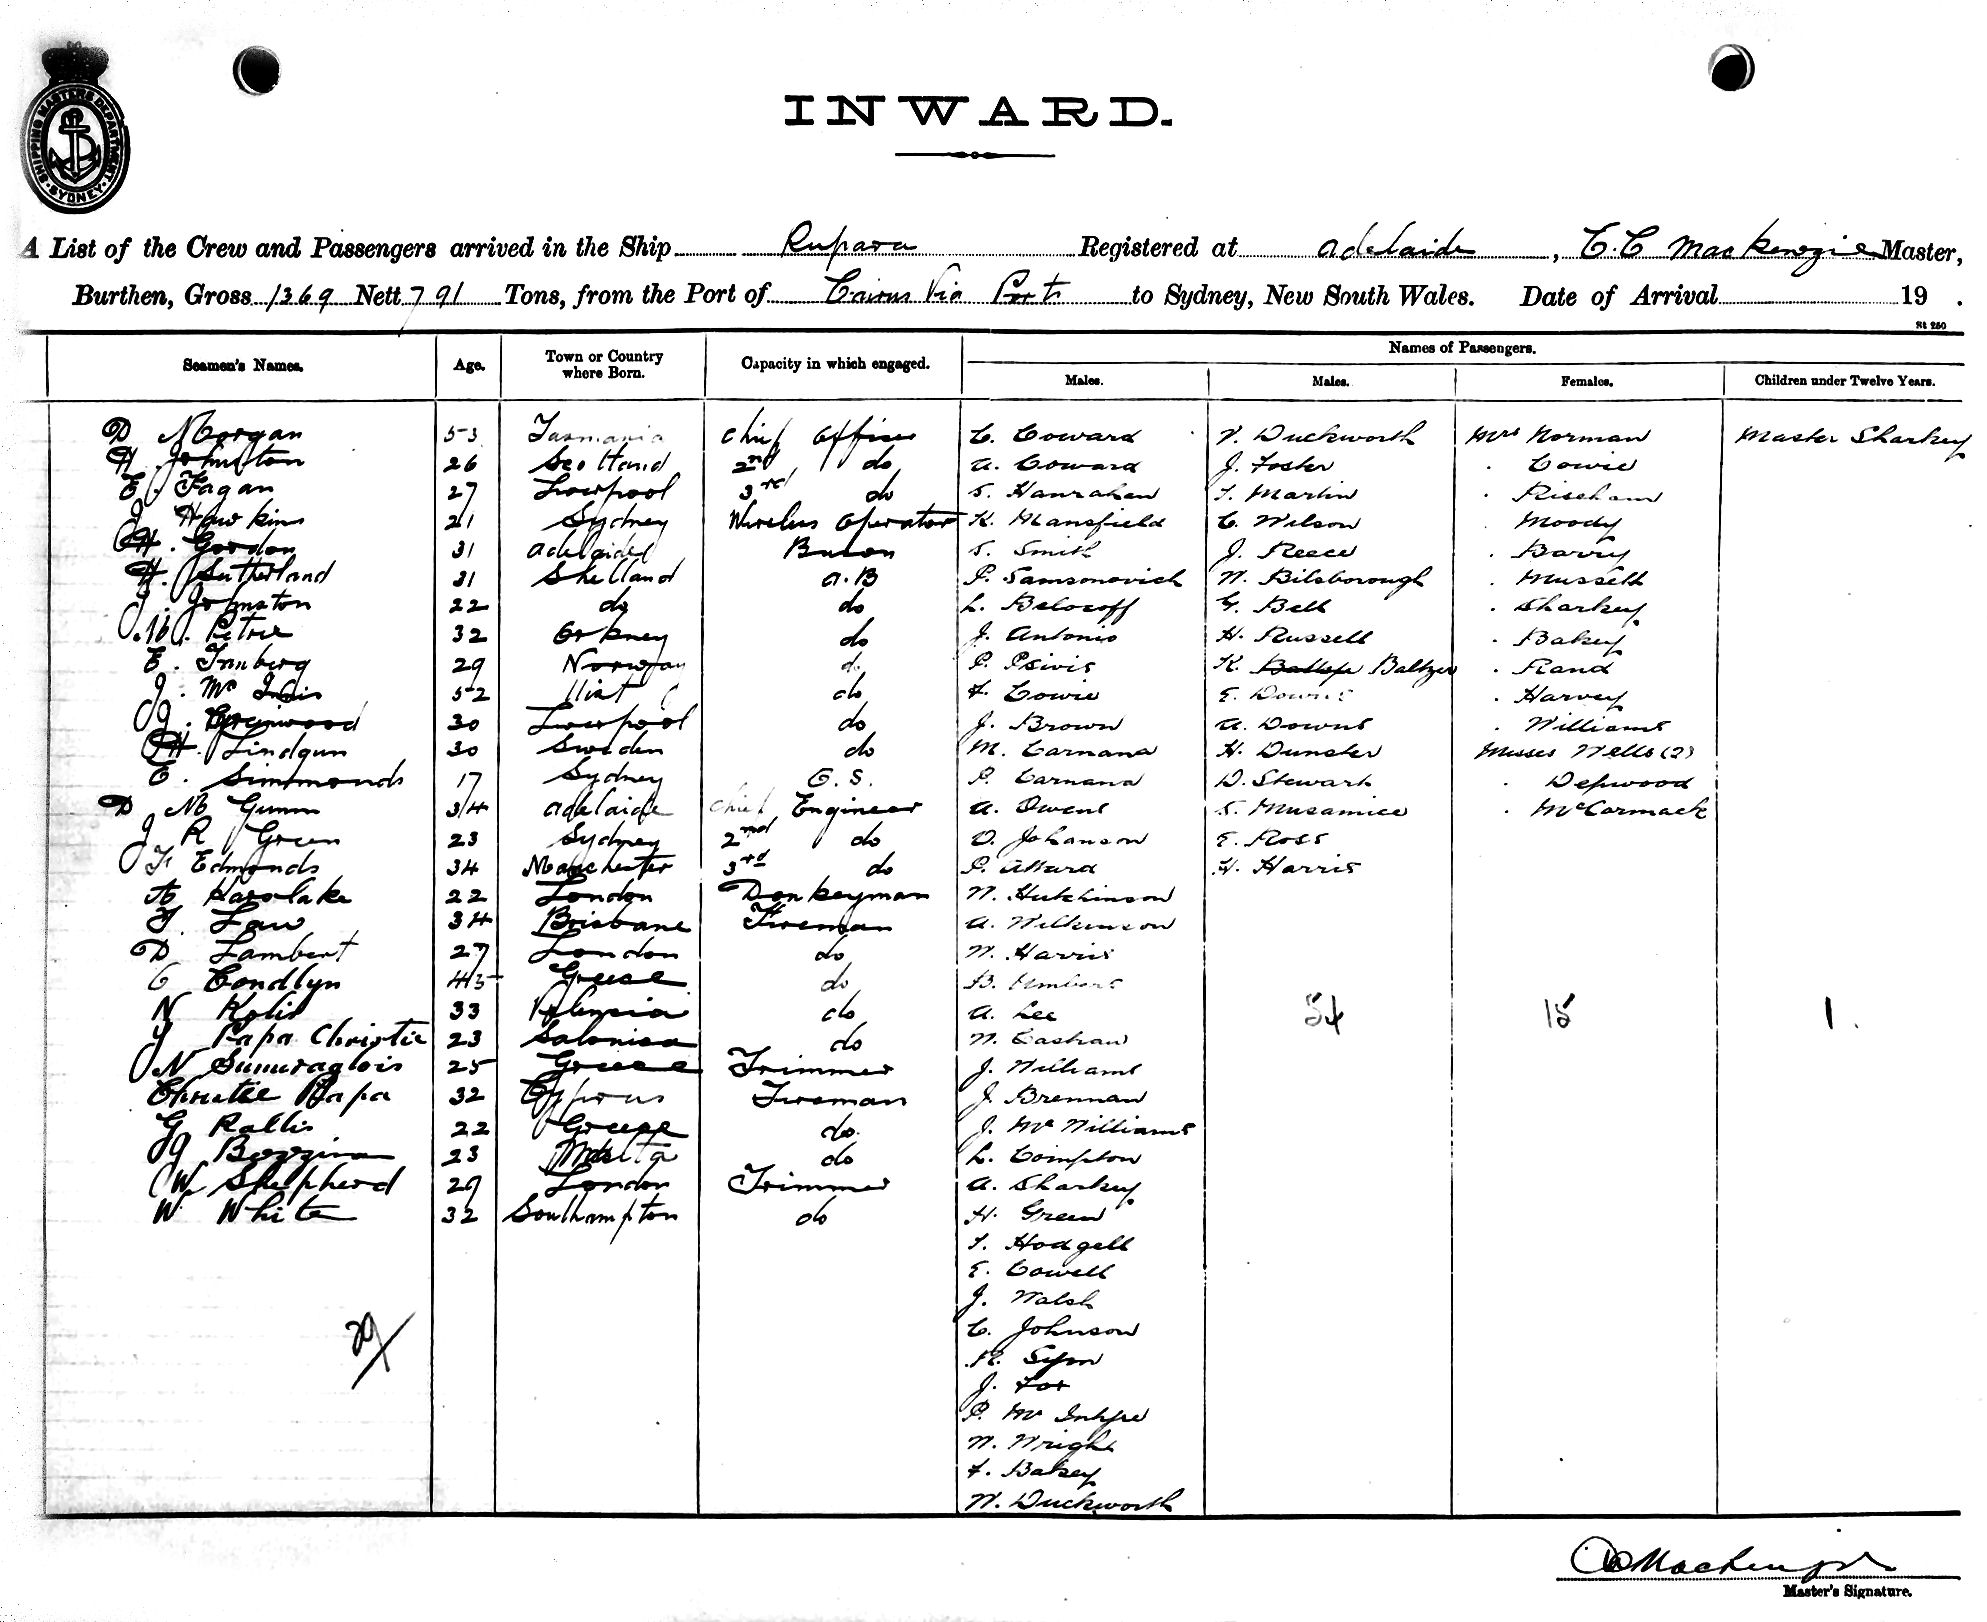 INWARD.
SHIPPING MASTERS DEPARTMENT SYDNEY
A List of the Crew and Passengers arrived in the Ship Rupara Registered at Adelaide, C.C Mackenzie Master,
Burthen, Gross 1369 Nett 791 Tons, from the Port of Cairns Via Ports to Sydney, New South Wales. Date of Arrival 19 .
St 250
Names of Passengers.
Seamen's Names. Age. Town or Country where Born. Capacity in which engaged. Males. Males. Females. Children under Twelve Years.
D Morgan 53 Tasmania Chief Officer C. Coward V. Duckworth Mrs Norman Master Sharkey
H Johnston 26 Scotland 2nd do A. Coward J. Foster . Cowie
E. Fagan 27 Liverpool 3rd do S. Hanrahan T. Martin .
J Hawkins 21 Sydney Wireless Operator K. Mansfield C. Wilson . Moody
H. Gordon 31 Adelaide S. Smith J. Reece . Barry
H. Sutherland 31 Shetland A.B P. Samsonovich W. Bilsborough . Mussett
J. Johnston 22 do do L. Belocoff G. Bell . Sharkey
W. Petrie 32 Orkney do J. Antonio H. Russell . Bakey
E. 29 Norway do P. Psivis K. Baltzer . Rand
J. Mc 52 Uist do F. Cowie E. Downs . Harvey
J. Greenwood 30 Liverpool do J. Brown A. Downs . Williams
H. Lindgun 30 Sweden do M. Carnana H. Dunster Misses Wells (2)
E. Simmonds 17 Sydney O.S. P. Carnana D. Stewart . Depwood
D M Gunn 34 Adelaide Chief Engineer A. Owens S. Musamice . McCormack
J R Green 23 Sydney 2nd do O. Johanson E. Ross
F Edmonds 34 Manchester 3rd do P. Attard H. Harris
A Harolake 22 London Donkeyman W. Hutchinson
T. Law 34 Brisbane Fireman A. Wilkinson
D Lambert 27 London do W. Harris
C Condlyn 45 Greese do B.
N Kolis 33 do A. Lee 54 15 1.
J Papa Christie 23 Salonica do W. Cashaw
N 25 Greese Trimmer J. Williams
Christie Papa 32 Cyprus Fireman J. Brennan
G Rallis 22 Greese do. J. McWilliams
J 23 Malta do L. Compton
W Shepherd 29 London Trimmer A. Sharkey
W White 32 Southampton do H. Green
T. Hodgell
E. Cowell
J. Walsh
C. Johnson
R. Sym
J. Fox
P. Mc
W. Wright
F. Bakey
W. Duckworth
29
CC Mackenzie
Master's Signature.